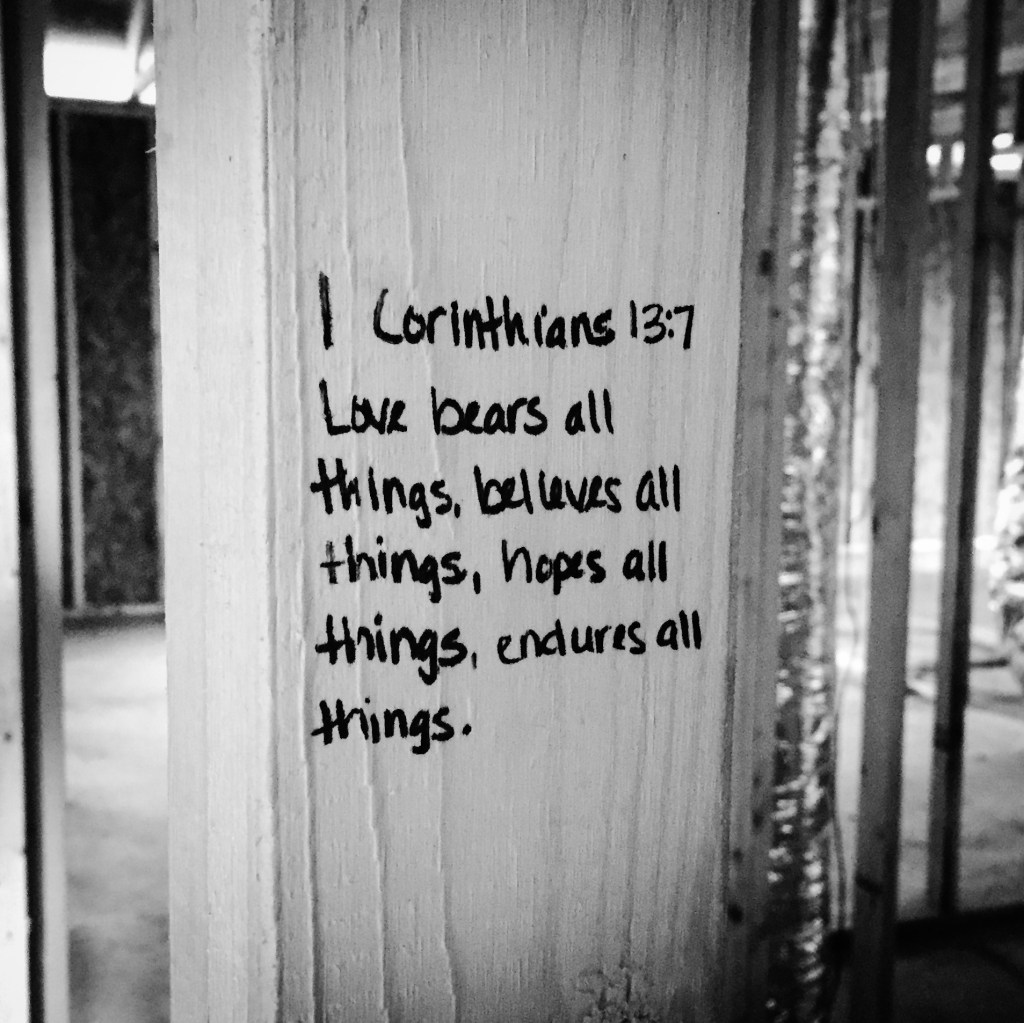 1 Corinthians 13:7
Love bears all
things, believes all
things, hopes all
things, endures all
things.